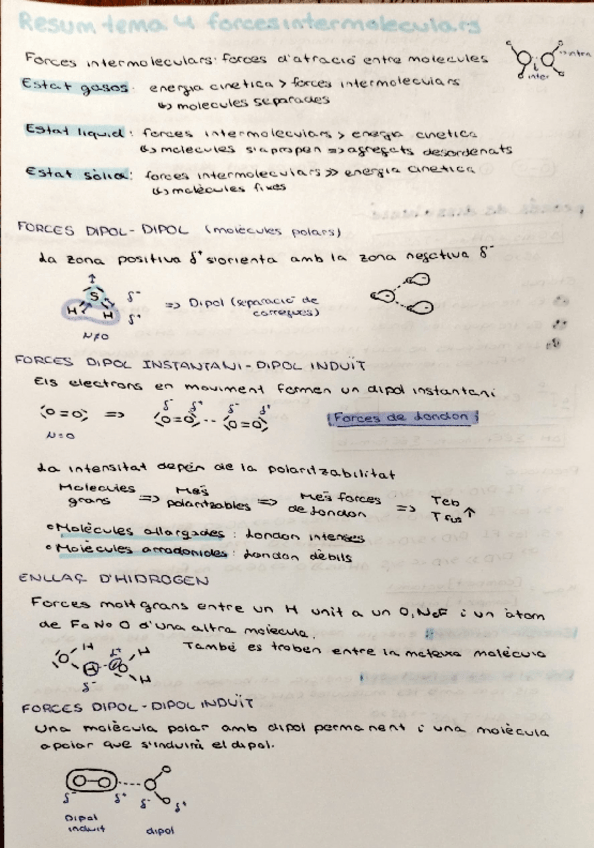 Resum tema 4 forces intermoleculars
Forces intermoleculars: forces d'atració entre molècules
intra
inter
Estat gasos: energia cinetica > forces intermoleculars
↳ molecules separades
Estat liquid: forces intermoleculars > energia cinetica
↳ molecules s'apropen => agregats desordenats
Estat sòlid: forces intermoleculars >> energia cinetica
↳ molècules fixes
FORCES DIPOL-DIPOL (molècules polars)
La zona positiva δ+ s'orienta amb la zona negativa δ-
S δ-
H H δ+
=> Dipol (separació de
carregues)
μ≠0
FORCES DIPOL INSTANTANI-DIPOL INDUÏT
Els electrons en moviment formen un dipol instantani
δ- δ+ δ- δ+
O=O => O=O -- O=O
Forces de London
μ=0
La intensitat depèn de la polaritzabilitat
Molecules grans => Més polaritzables => Més forces de London => Teb Tfus ↑
• Molècules allargades: London intenses
• Molècules arrodonides: London dèbils
ENLLAÇ D'HIDROGEN
Forces molt grans entre un H unit a un O, N o F i un àtom
de F o N o O d'una altra molècula.
També es troben entre la mateixa molècula
O H H δ+ O H H
δ-
FORCES DIPOL-DIPOL INDUÏT
Una molècula polar amb dipol permanent i una molècula
apolar que s'induirà el dipol.
δ- δ+ δ- δ+
Dipol
induit
dipol